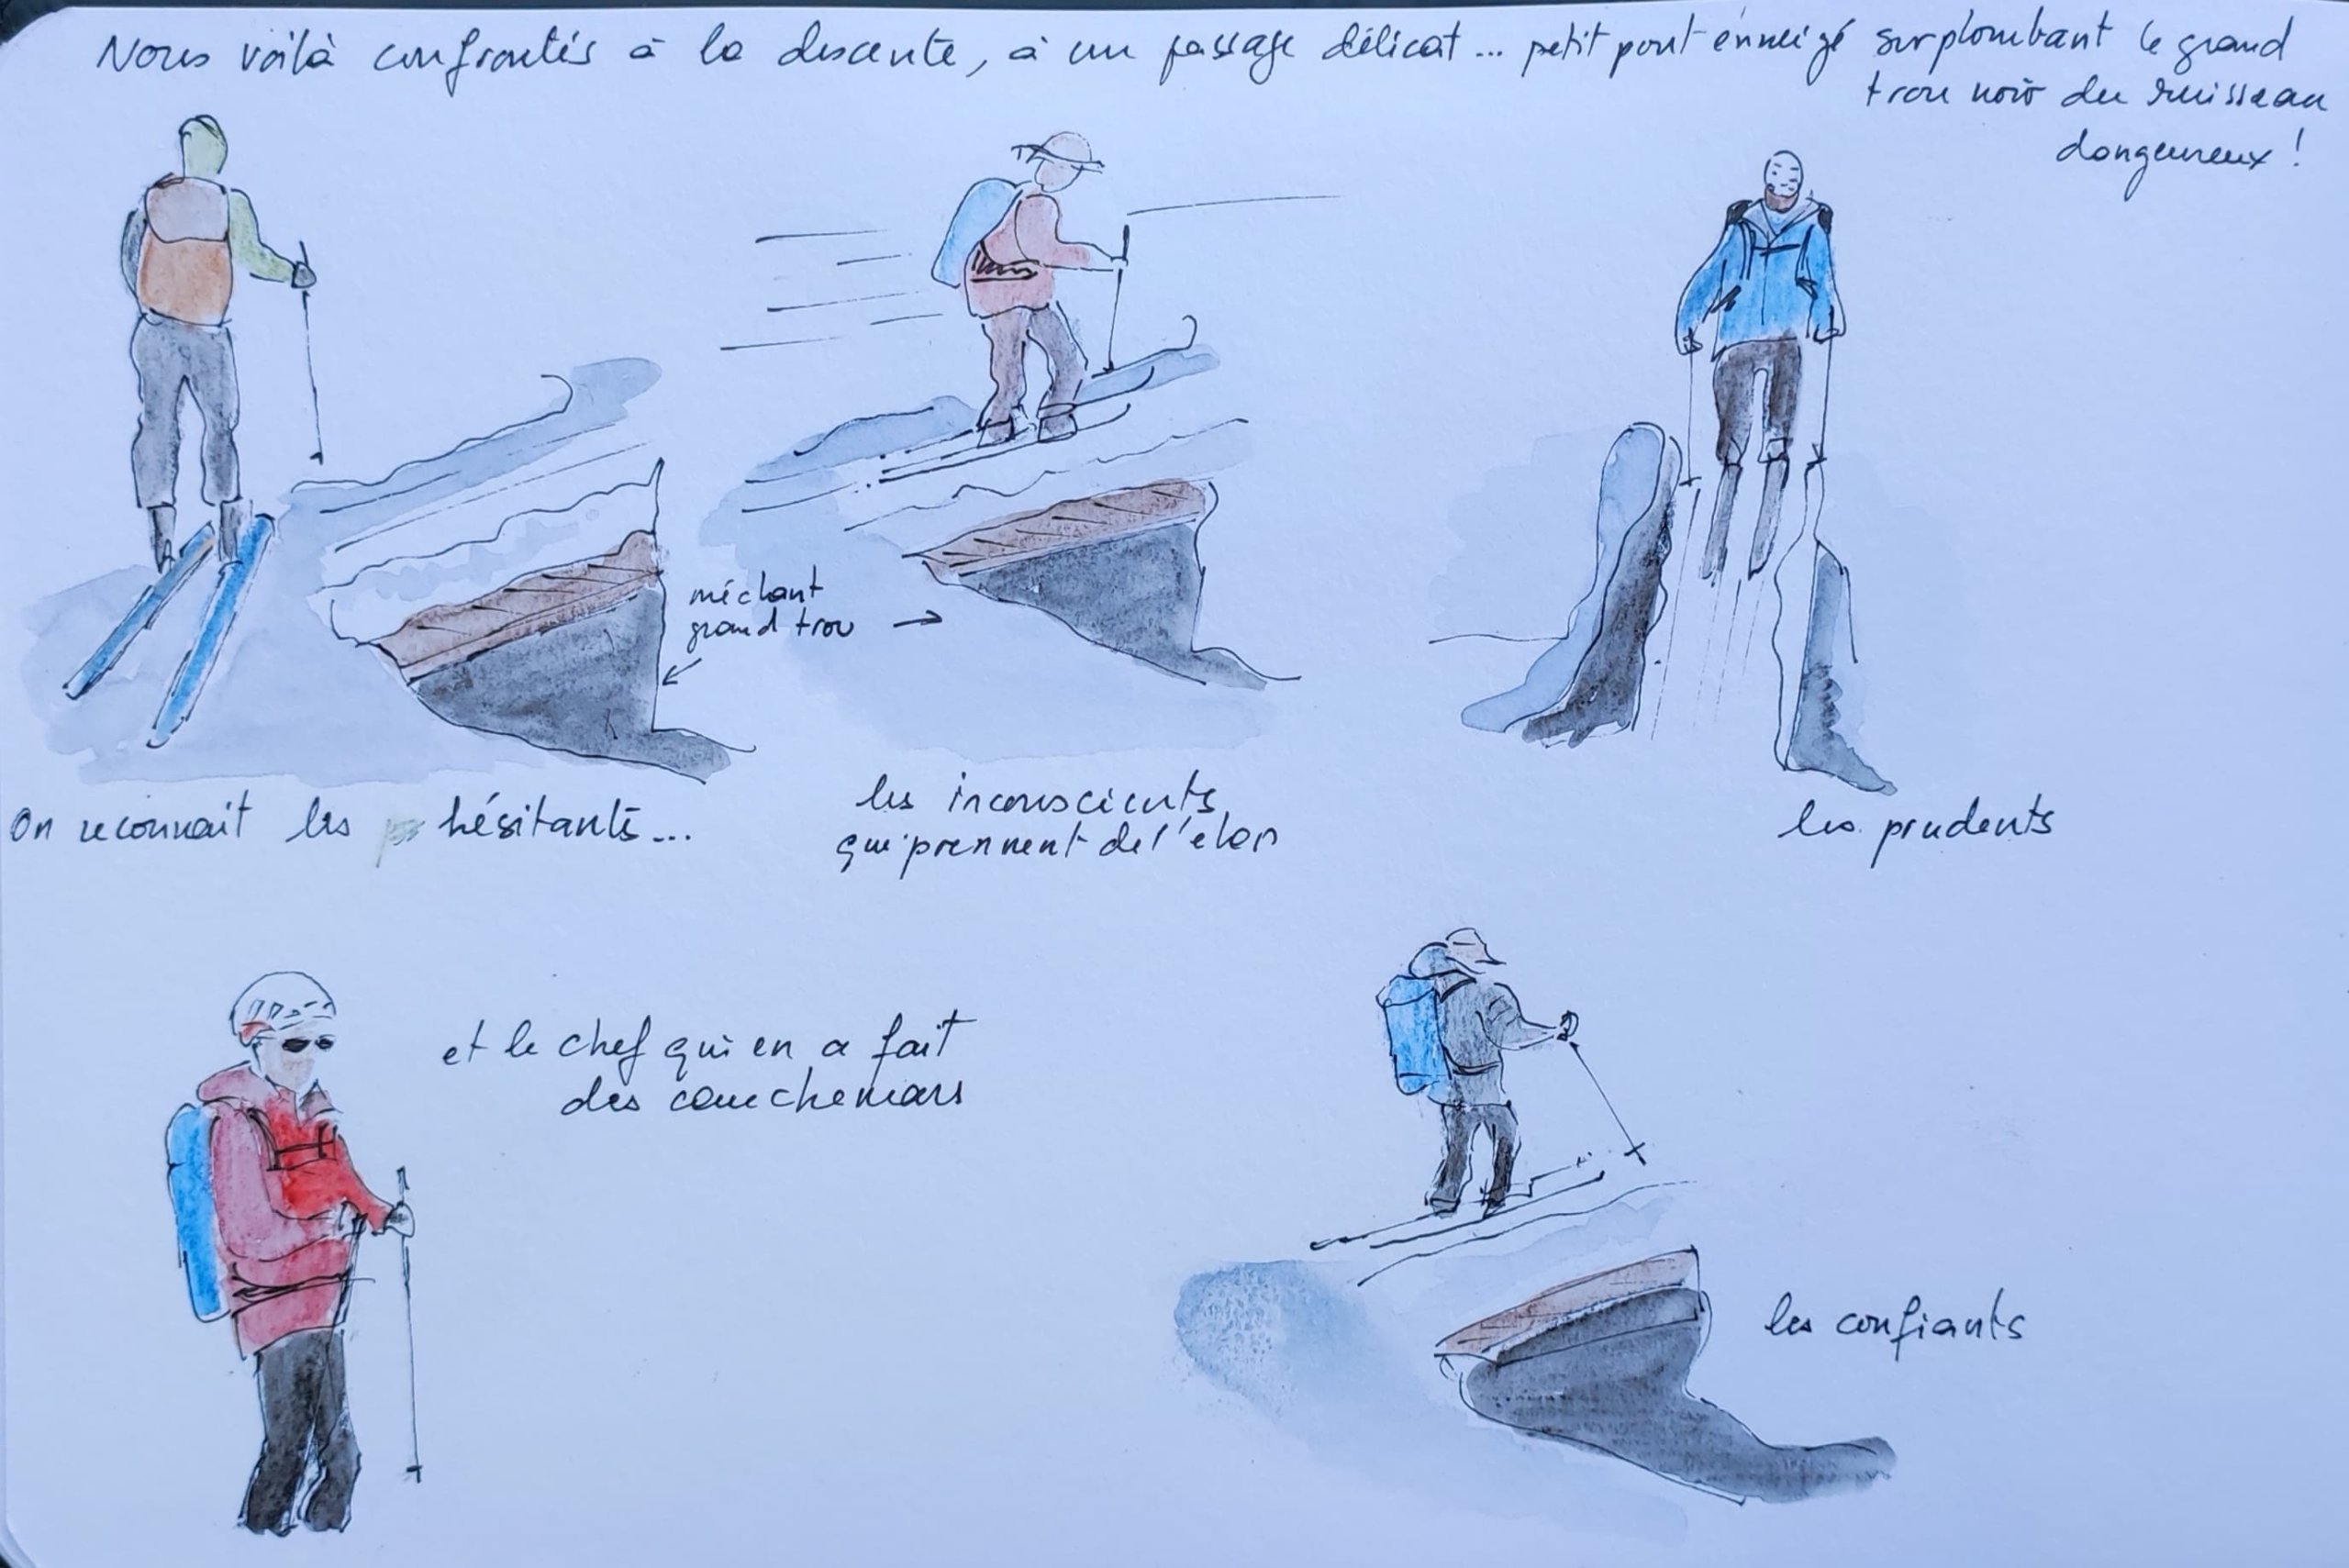 Nous voilà confrontés à la descente, à un passage délicat... petit pont enneigé surplombant le grand
trou noir du ruisseau
dangeureux !
méchant
grand trou
On reconnait les hésitants...
les inconscients
qui prennent de l'élan
les prudents
et le chef qui en a fait
des cauchemars
les confiants